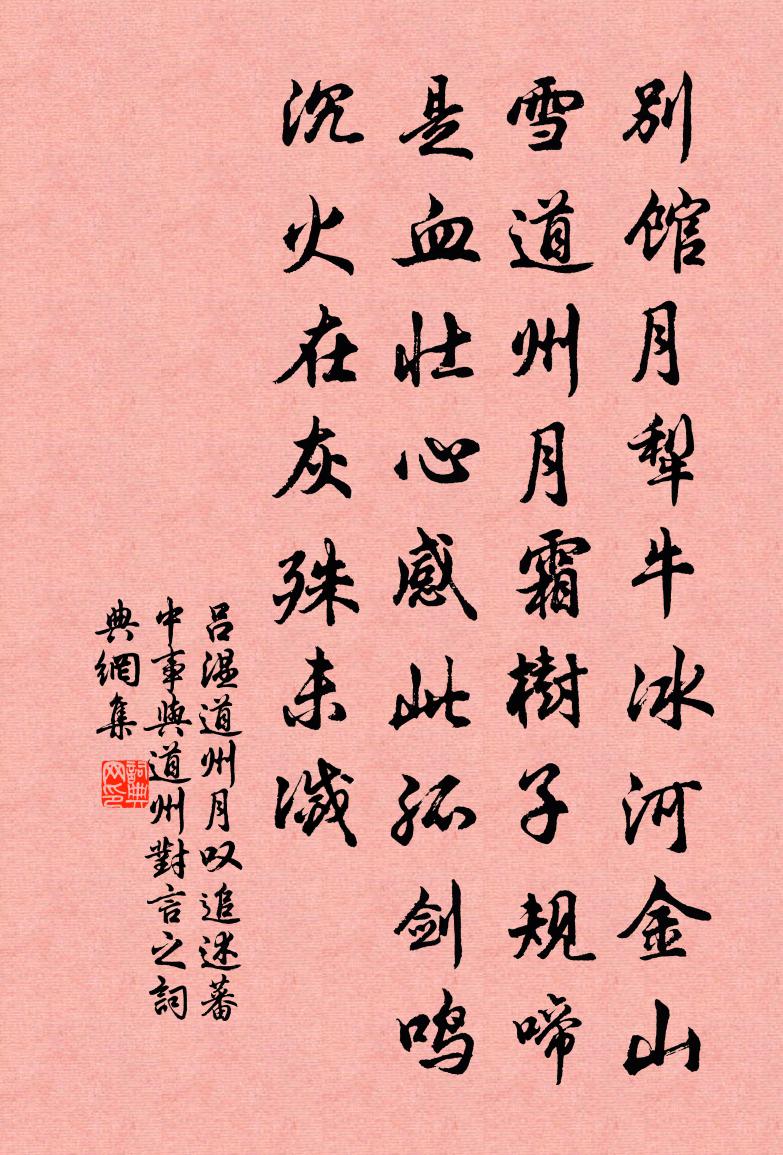 别馆月犁牛冰河金山
雪道州月霜樹子规啼
是血壮心感此孤剑鸣
沉火在灰殊未滅
吕温道州月叹追述蕃
中事與道州對言之詞
典網集
詞典
网印